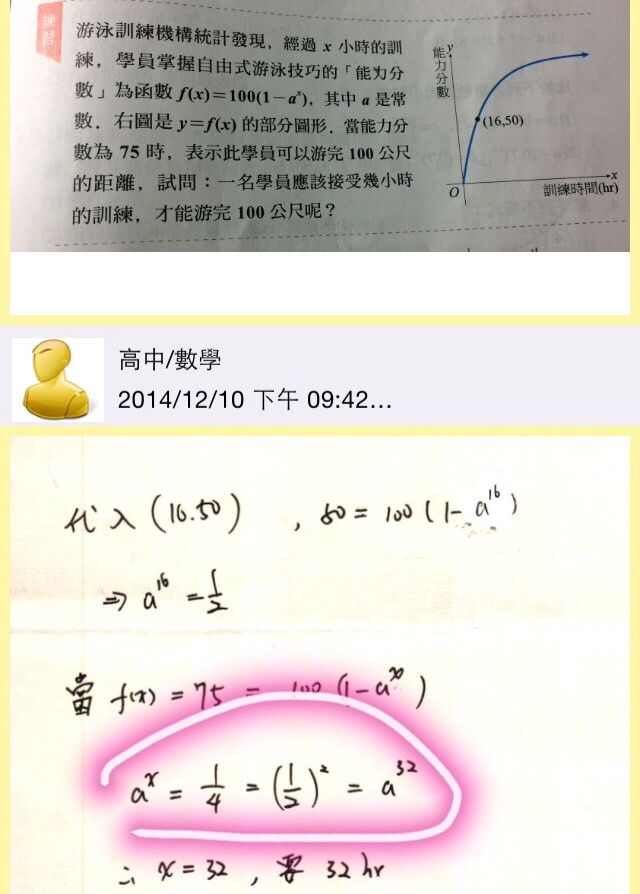 練習
游泳訓練機構統計發現，經過 x 小時的訓
練，學員掌握自由式游泳技巧的「能力分
數」為函數 f(x)=100(1−aˣ)，其中 a 是常
數．右圖是 y=f(x) 的部分圖形．當能力分
數為 75 時，表示此學員可以游完 100 公尺
的距離，試問：一名學員應該接受幾小時
的訓練，才能游完 100 公尺呢？
能力分數
y
(16,50)
O
x
訓練時間(hr)
高中/數學
2014/12/10 下午 09:42...
代入 (16.50) , 50 = 100 (1- a¹⁶)
⇒ a¹⁶ = 1/2
當 f(x) = 75 = 100 (1-aˣ)
aˣ = 1/4 = (1/2)² = a³²
∴ x = 32 , 要 32 hr